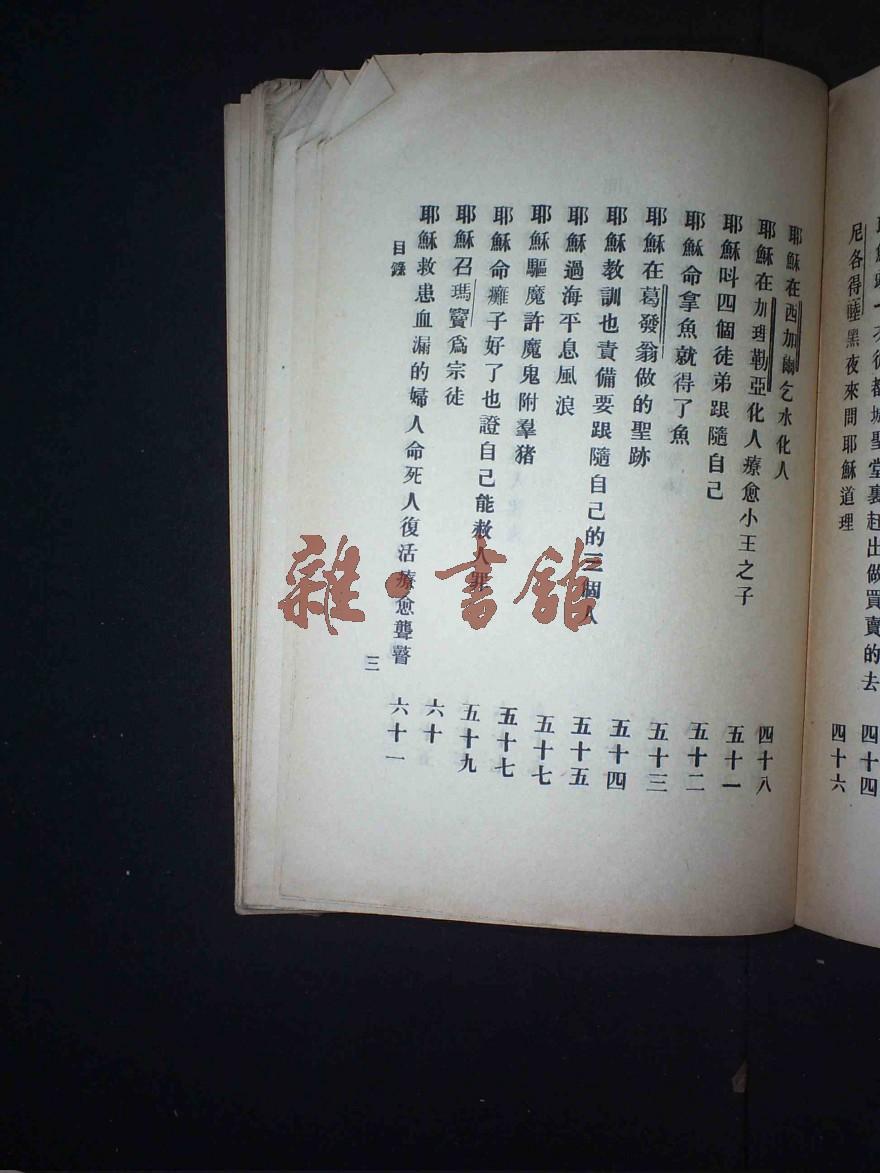 從都城聖堂裏赶出做買賣的去 四十四
尼各得睦黑夜來問耶穌道理 四十六
耶穌在西加爾乞水化人 四十八
耶穌在加理勒亞化人療愈小王之子 五十一
耶穌呌四個徒弟跟隨自己 五十二
耶穌命拿魚就得了魚 五十三
耶穌在葛發翁做的聖跡 五十四
耶穌教訓也責備要跟隨自己的三個人 五十五
耶穌過海平息風浪 五十七
耶穌驅魔許魔鬼附羣猪 五十七
耶穌命癱子好了也證自己能赦人罪 五十九
耶穌召瑪竇爲宗徒 六十
耶穌救患血漏的婦人命死人復活療愈聾瞽 六十一
目錄 三
雜·書館